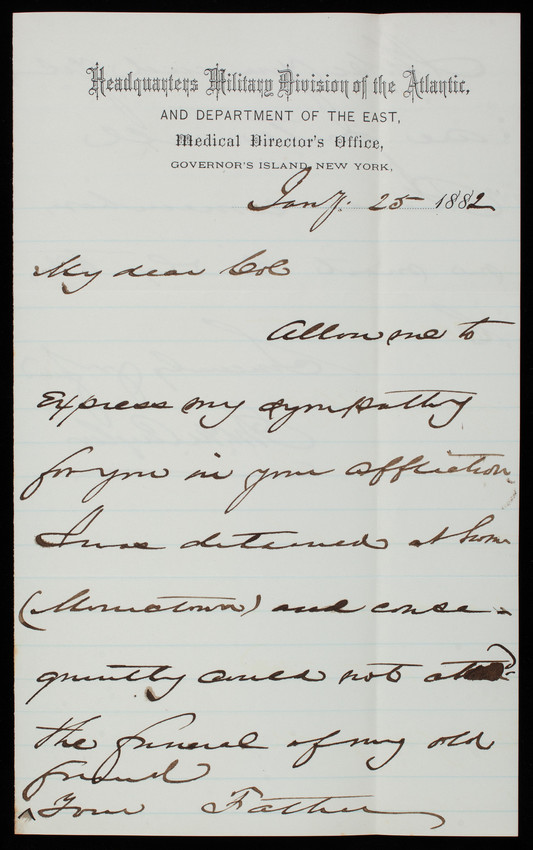 Headquarters Military Division of the Atlantic,
AND DEPARTMENT OF THE EAST,
Medical Director's Office,
GOVERNOR'S ISLAND, NEW YORK,
Jany. 25 1882
My dear Col
Allow me to
express my sympathy
for you in your affliction,
I was detained at home
(Morristown) and conse-
quently could not attend
the funeral of my old
friend
^ Your Father